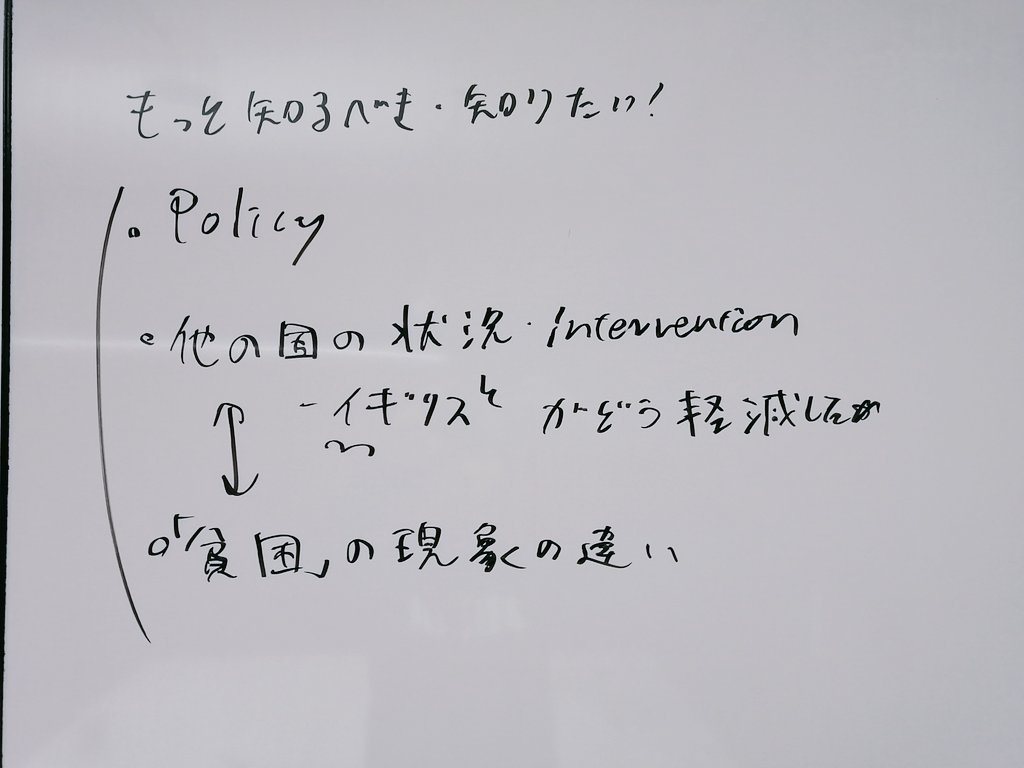 もっと知るべき・知りたい!
・Policy
・他の国の状況・intervention
- イギリス がどう軽減したか
・「貧困」の現象の違い